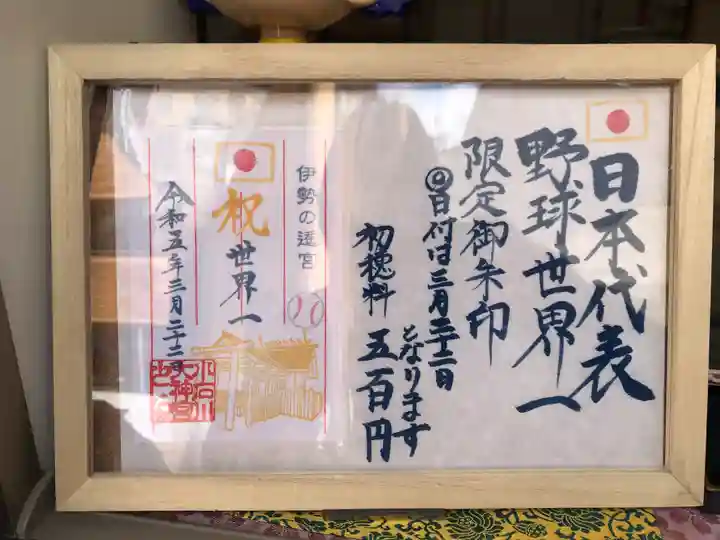 日本代表
野球世界一
限定御朱印
◎日付は三月二十二日
となります
初穂料 五百円
伊勢の遥宮
祝世界一
令和五年三月二十二日
小石川
大神宮